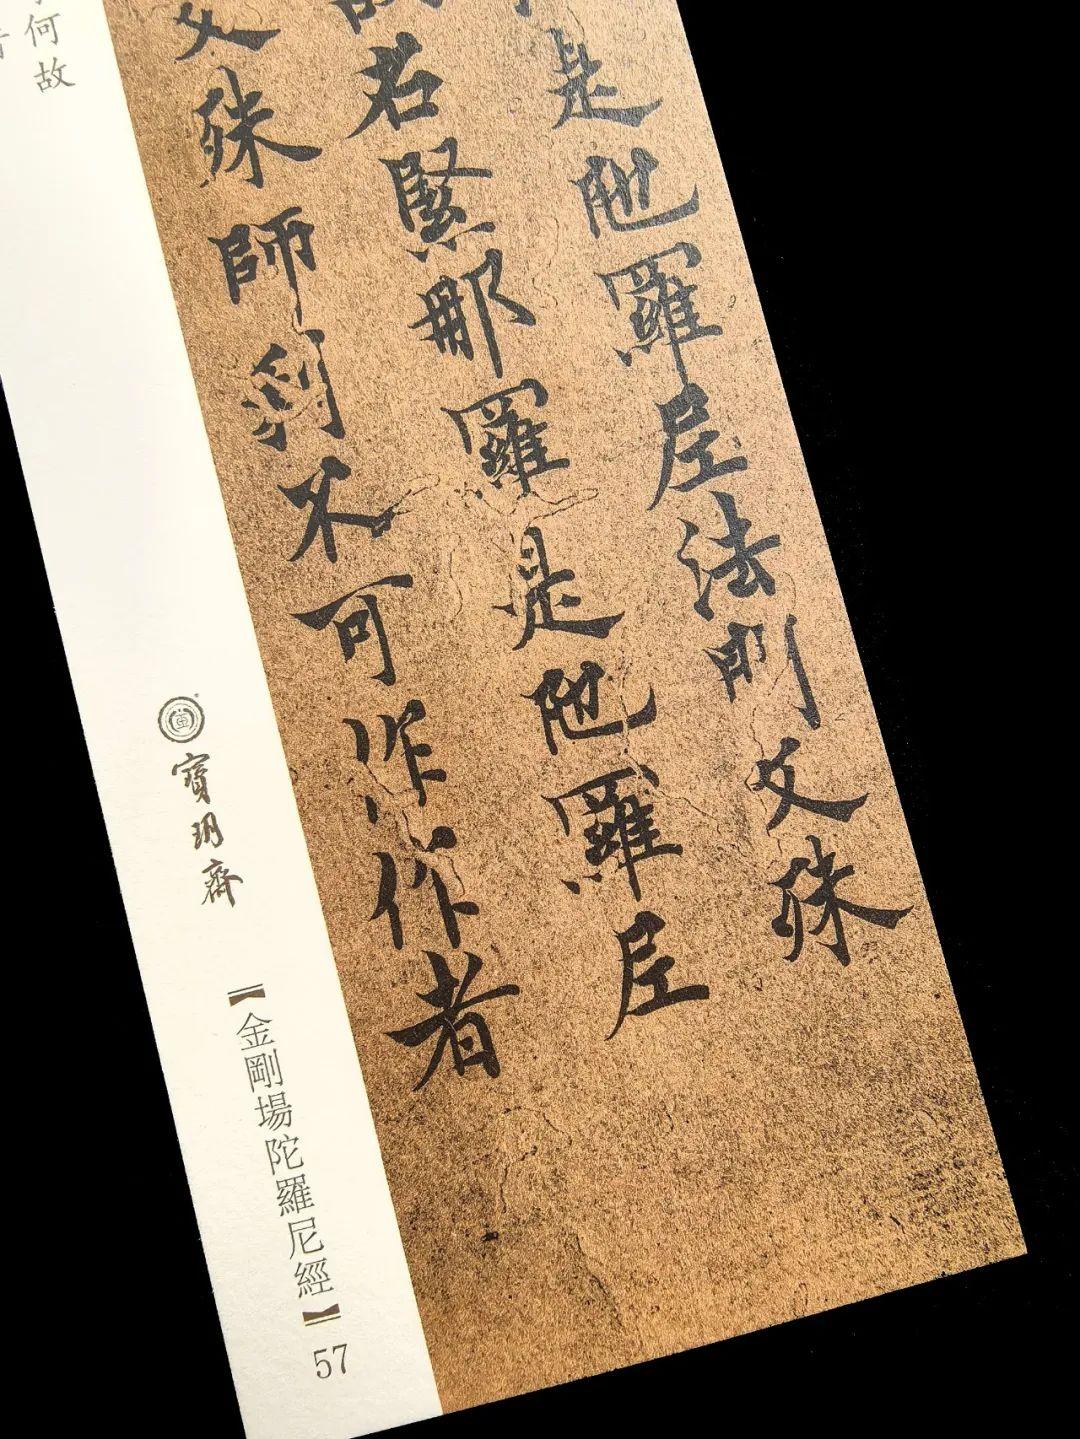 是陁羅尼法門文殊
名緊那羅是陁羅尼
文殊師利不可作作者
何故
寶玥齋
【金剛場陀羅尼經】
57